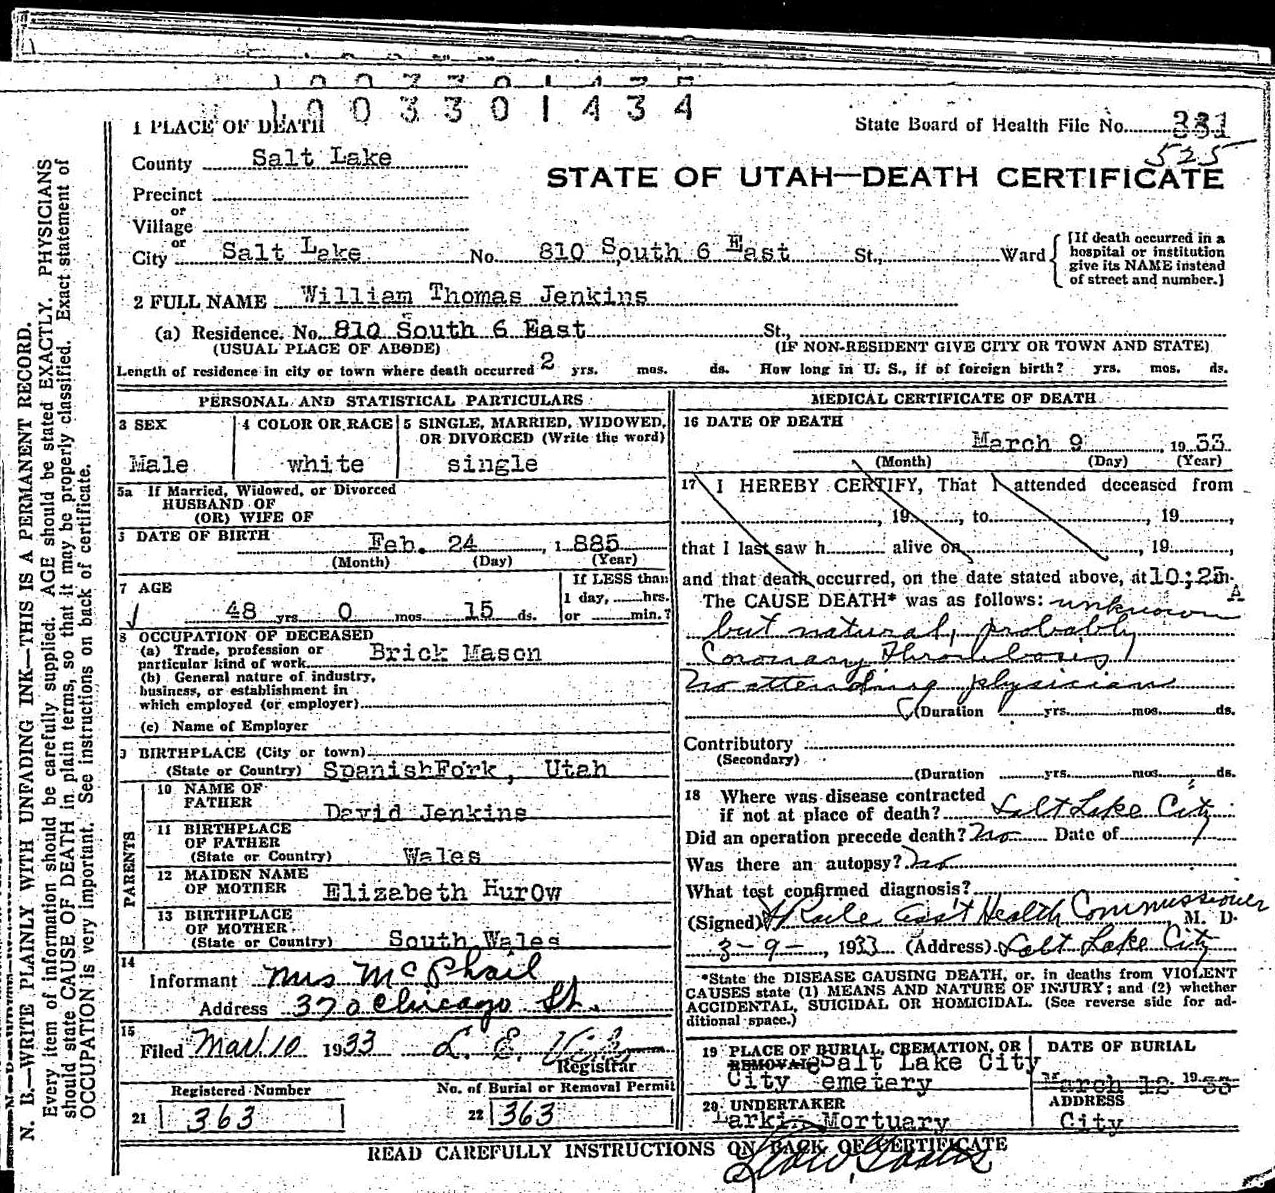 1003301434
1 PLACE OF DEATH
State Board of Health File No. 331
525
County Salt Lake
STATE OF UTAH—DEATH CERTIFICATE
Precinct
or
Village
or
City Salt Lake No. 810 South 6 East St., Ward
[If death occurred in a
hospital or institution
give its NAME instead
of street and number.]
2 FULL NAME William Thomas Jenkins
(a) Residence. No. 810 South 6 East St.,
(USUAL PLACE OF ABODE) (IF NON-RESIDENT GIVE CITY OR TOWN AND STATE)
Length of residence in city or town where death occurred 2 yrs. mos. ds. How long in U. S., if of foreign birth? yrs. mos. ds.
PERSONAL AND STATISTICAL PARTICULARS
3 SEX
Male
4 COLOR OR RACE
white
5 SINGLE, MARRIED, WIDOWED,
OR DIVORCED (Write the word)
single
5a If Married, Widowed, or Divorced
HUSBAND OF
(OR) WIFE OF
DATE OF BIRTH
Feb. 24, 1885
(Month) (Day) (Year)
7 AGE
48 yrs 0 mos. 15 ds.
If LESS than
1 day, hrs.
or min.?
8 OCCUPATION OF DECEASED
(a) Trade, profession or
particular kind of work Brick Mason
(b) General nature of industry,
business, or establishment in
which employed (or employer)
(c) Name of Employer
BIRTHPLACE (City or town)
(State or Country) SpanishFork, Utah
PARENTS
10 NAME OF
FATHER
David Jenkins
11 BIRTHPLACE
OF FATHER
(State or Country) Wales
12 MAIDEN NAME
OF MOTHER Elizabeth HurOw
13 BIRTHPLACE
OF MOTHER
(State or Country) South Wales
14
Informant Mrs McPhail
Address 370 Chicago St.
15
Filed Mar. 10 1933 L. E.
Registrar
Registered Number
21 363
No. of Burial or Removal Permit
22 363
MEDICAL CERTIFICATE OF DEATH
16 DATE OF DEATH
March 9 1933
(Month) (Day) (Year)
17 I HEREBY CERTIFY, That I attended deceased from
, 19 , to , 19 ,
that I last saw h alive on , 19 ,
and that death occurred, on the date stated above, at 10:25 m.
A
The CAUSE DEATH* was as follows: unknown
but natural, probably
Coronary Thrombosis
No attending physician
(Duration yrs. mos. ds.
Contributory
(Secondary)
(Duration yrs. mos. ds.
18 Where was disease contracted
if not at place of death? Salt Lake City
Did an operation precede death? No Date of
Was there an autopsy? No
What test confirmed diagnosis?
(Signed) Ass't Health Commissioner, M. D.
3-9-, 1933 (Address) Salt Lake City
*State the DISEASE CAUSING DEATH, or, in deaths from VIOLENT
CAUSES state (1) MEANS AND NATURE OF INJURY; and (2) whether
ACCIDENTAL, SUICIDAL OR HOMICIDAL. (See reverse side for ad-
ditional space.)
19 PLACE OF BURIAL, CREMATION, OR
REMOVAL Salt Lake City
City emetery
DATE OF BURIAL
March 12 1933
20 UNDERTAKER
Larkin Mortuary
ADDRESS
City
READ CAREFULLY INSTRUCTIONS ON BACK OF CERTIFICATE
N. B.—WRITE PLAINLY WITH UNFADING INK—THIS IS A PERMANENT RECORD.
Every item of information should be carefully supplied. AGE should be stated EXACTLY. PHYSICIANS
should state CAUSE OF DEATH in plain terms, so that it may be properly classified. Exact statement of
OCCUPATION is very important. See instructions on back of certificate.